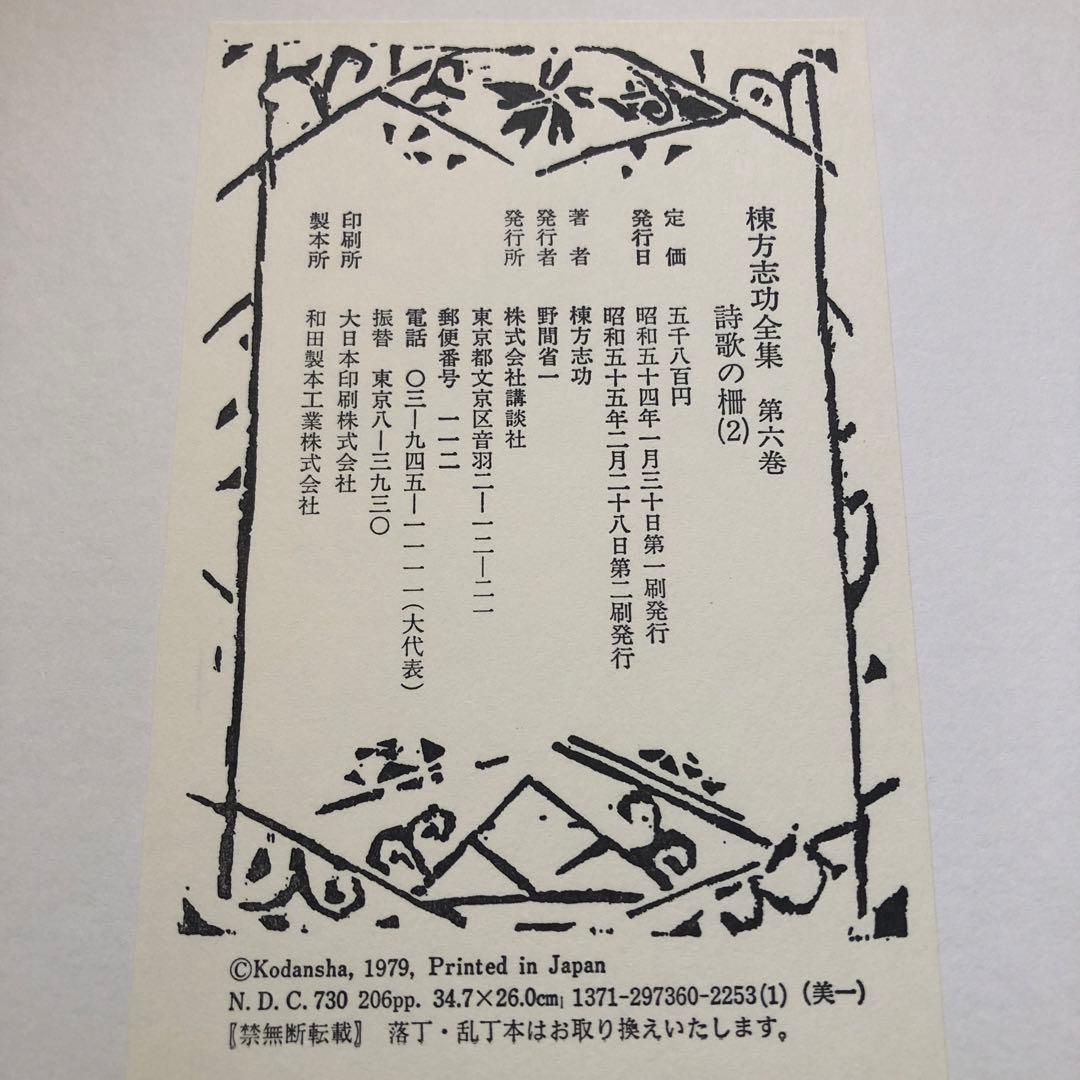 棟方志功全集　第六巻
詩歌の柵(2)
定　価　五千八百円
発行日　昭和五十四年一月三十日第一刷発行
昭和五十五年二月二十八日第二刷発行
著　者　棟方志功
発行者　野間省一
発行所　株式会社講談社
東京都文京区音羽二ー一二ー二一
郵便番号　一一二
電話　〇三ー九四五ー一一一一(大代表)
振替　東京八ー三九三〇
印刷所　大日本印刷株式会社
製本所　和田製本工業株式会社
©Kodansha, 1979, Printed in Japan
N. D. C. 730 206pp. 34.7×26.0㎝ 1371-297360-2253(1) (美一)
〖禁無断転載〗 落丁・乱丁本はお取り換えいたします。